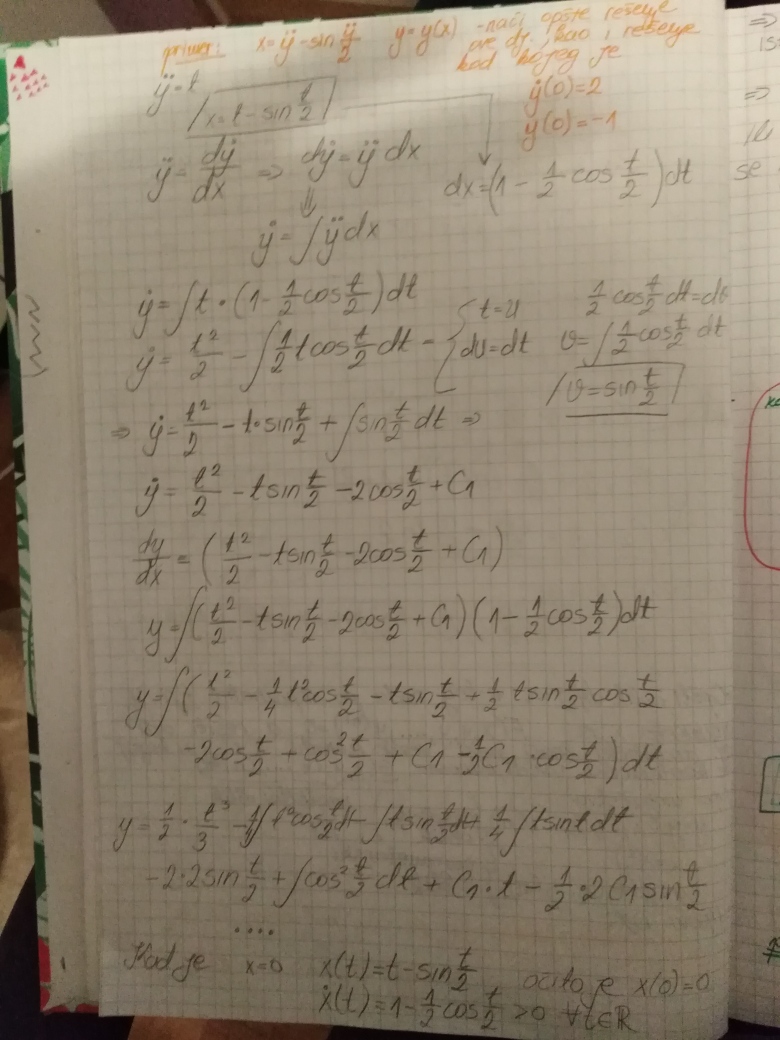 primer: x = ÿ - sin ÿ/2 y = y(x) - naći opšte rešenje
ove dj, kao i rešenje
kod kojeg je
ÿ = t
/x = t - sin t/2/
ẏ(0) = 2
y(0) = -1
ÿ = dẏ/dx ⇒ dẏ = ÿ dx
dx = (1 - 1/2 cos t/2) dt
⇓
ẏ = ∫ ÿ dx
ẏ = ∫ t · (1 - 1/2 cos t/2) dt
ẏ = t²/2 - ∫ 1/2 t cos t/2 dt = { t = u 1/2 cos t/2 dt = dv
du = dt v = ∫ 1/2 cos t/2 dt
/v = sin t/2/
⇒ ẏ = t²/2 - t · sin t/2 + ∫ sin t/2 dt ⇒
ẏ = t²/2 - t sin t/2 - 2cos t/2 + C1
dy/dx = (t²/2 - t sin t/2 - 2cos t/2 + C1)
y = ∫ (t²/2 - t sin t/2 - 2cos t/2 + C1) (1 - 1/2 cos t/2) dt
y = ∫ (t²/2 - 1/4 t² cos t/2 - t sin t/2 + 1/2 t sin t/2 cos t/2
- 2cos t/2 + cos² t/2 + C1 - 1/2 C1 · cos t/2) dt
y = 1/2 · t³/3 - 1/4 ∫ t² cos t/2 dt - ∫ t sin t/2 dt + 1/4 ∫ t sin t dt
- 2·2 sin t/2 + ∫ cos² t/2 dt + C1 · t - 1/2 · 2 C1 sin t/2
....
Kad je x = 0 x(t) = t - sin t/2 očito je x(0) = 0
ẋ(t) = 1 - 1/2 cos t/2 > 0 ∀t∈ℝ